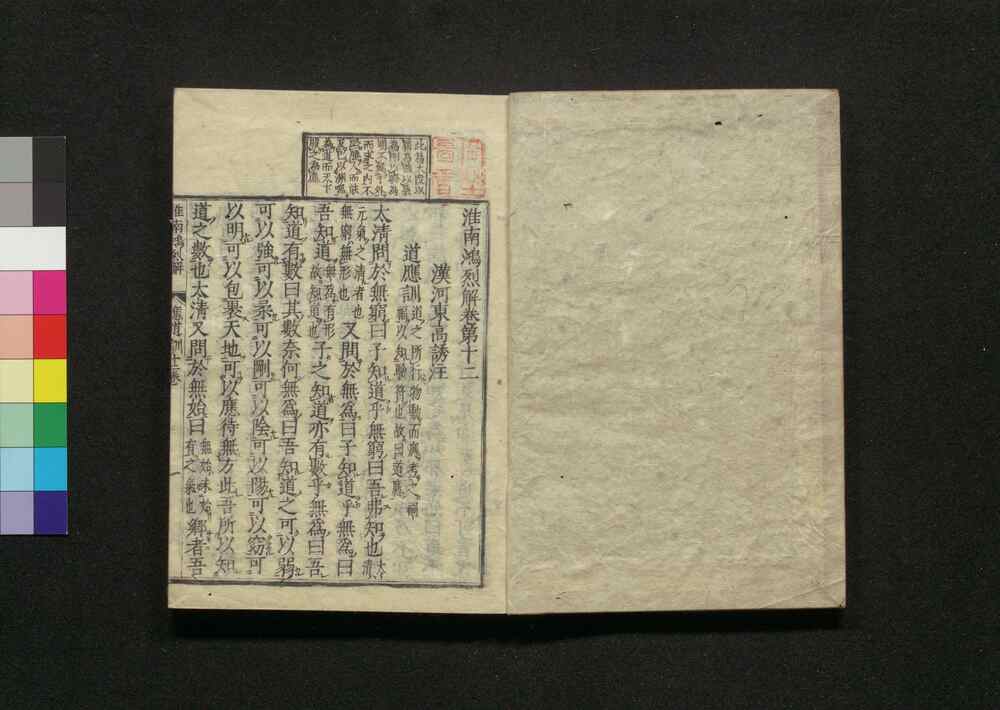 淮南鴻烈解卷第十二
漢河東高誘注
道應訓道之所行物動而應考之禍福以知驗符也故曰道應
太清問於無窮曰子知道乎無窮曰吾弗知也太清
元氣之清者也無窮無形也又問於無為曰子知道乎無為曰
吾知道無為有形故知道也子之知道亦有數乎無為曰吾
知道有數曰其數奈何無為曰吾知道之可以弱
可以強可以柔可以剛可以陰可以陽可以窈可
以明可以包裹天地可以應待無方此吾所以知
道之數也太清又問於無始曰無始未始有之氣也鄉者吾
淮南鴻烈解
應道訓十二卷